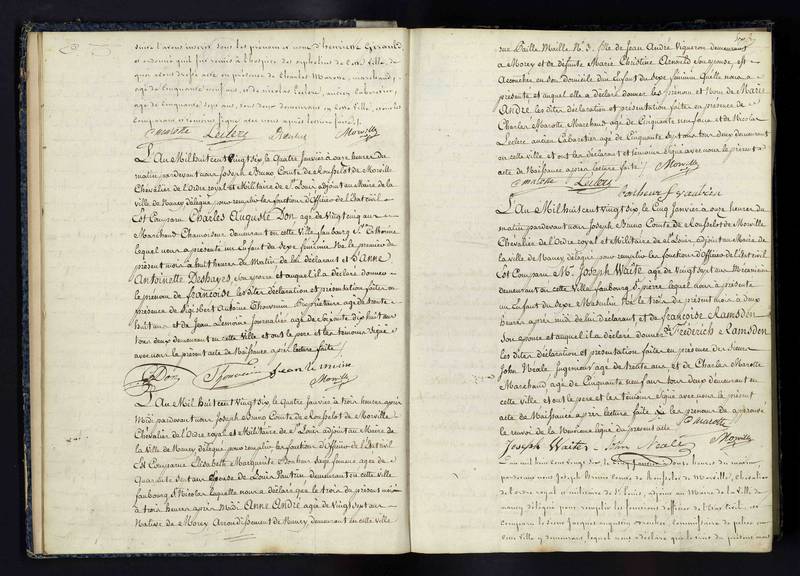 suite l'avons inscrit sous les prénom et nom d'henriette Girauld
et ordonné qu'il fut remis à l'hospice des orphelins de cette ville, de
quoi avons dressé acte en présence de Charles Marotte, marchand,
agé de cinquante neuf ans, et de Nicolas Leclerc, ancien cabaretier,
agé de cinquante sept ans, tous deux demeurant en cette ville,
comparant et témoins signé avec nous après lecture faite
Cmarotte Leclerc Morville
L'An Mil huit cent vingt six, le Quatre Janvier à onze heures du
matin pardevant nous Joseph Bruno Comte de Rousselot de Morville
Chevalier de l'Ordre royal et Militaire de St Louis adjoint au Maire de la
ville de Nancy délégué pour remplir les fonctions d'officier de l'Etat civil
Est Comparu Charles Auguste Don agé de vingt cinq ans
Marchand Chamoiseur demeurant en cette ville faubourg Ste Catherine
lequel nous a présenté un Enfant du sexe féminin Né le premier du
présent mois à huit heures du Matin de lui déclarant et D'anne
Antoinette Deshayes, son épouse et auquel il a déclaré donner
le prénom de francoise les dites déclaration et présentation faites en
présence de Sigisbert Antoine Thouvenin Propriétaire agé de trente
huit ans et de Jean Lemoine Journalier agé de soixante dix huit ans
tous deux demeurant en cette ville et ont le père et les témoins signé
avec nous le présent acte de Naissance après lecture faite
Don Thouvenin Jean le moine
Morville
L'An Mil huit cent vingt six, le Quatre Janvier à trois heures après
Midi pardevant nous Joseph Bruno Comte de Rousselot de Morville
Chevalier de l'Ordre royal et Militaire de St Louis adjoint au Maire de
la ville de Nancy délégué pour remplir les fonctions d'officier de l'Etat civil
Est Comparue Elisabeth Marguerite Bonheur sage femme agée de
Quarante ans épouse de Louis demeurant en cette ville
faubourg St Nicolas laquelle nous a déclaré que le trois du présent mois
à trois heures après Midi Anne André agée de vingt sept ans
Native de Morey Arrondissement de Nancy demeurant en cette ville
rue Paille Maille No 3. fille de Jean André Vigneron demeurant
à Morey et de défunte Marie Christine Renauld son épouse, est
accouchée en son domicile d'un Enfant du sexe féminin qu'elle nous a
présenté et auquel elle a déclaré donner les prénom et Nom de Marie
André, les dites déclaration et présentation faites en présence de
Charles Marotte Marchand agé de cinquante neuf ans et de Nicolas
Leclerc ancien Cabaretier agé de Cinquante sept ans tous deux demeurant
en cette ville et ont les déclarant et témoins signé avec nous le présent
acte de Naissance après lecture faite Morville
Cmarotte Leclerc
Bonheur
L'An Mil huit cent vingt six, le Cinq Janvier à onze heures du
matin pardevant nous Joseph Bruno Comte de Rousselot de Morville
Chevalier de l'Ordre royal et Militaire de St Louis adjoint au Maire de
la ville de Nancy délégué pour remplir les fonctions d'officier de l'Etat civil
Est Comparu Mr. Joseph Waite agé de vingt sept ans Mécanicien
demeurant en cette ville faubourg St pierre lequel nous a présenté
un Enfant du sexe Masculin Né le trois du présent mois à deux
heures après midi de lui déclarant et de francoise Ramsden
son épouse et auquel il a déclaré donner Frédérich Ramsden
les dites déclaration et présentation faites en présence des sieurs
John Néale Ingénieur agé de trente ans et de Charles Marotte
Marchand agé de Cinquante neuf ans tous deux demeurant en
cette ville et ont le père et les témoins signé avec nous le présent
acte de Naissance après lecture faite les prénoms
le renvoi de la neuvième ligne du présent acte Cmarotte
Joseph Waite John Neale Morville
L'an mil huit cent vingt six, le cinq Janvier à onze heures du matin,
par devant nous Joseph Bruno Comte de Rousselot de Morville, Chevalier
de l'ordre royal et militaire de St Louis, adjoint au Maire de la Ville de
nancy délégué pour remplir les fonctions d'officier de l'Etat civil, est
comparu le sieur Jacques augustin commissaire de police en
cette ville y demeurant, lequel nous a déclaré que le trois du présent mois